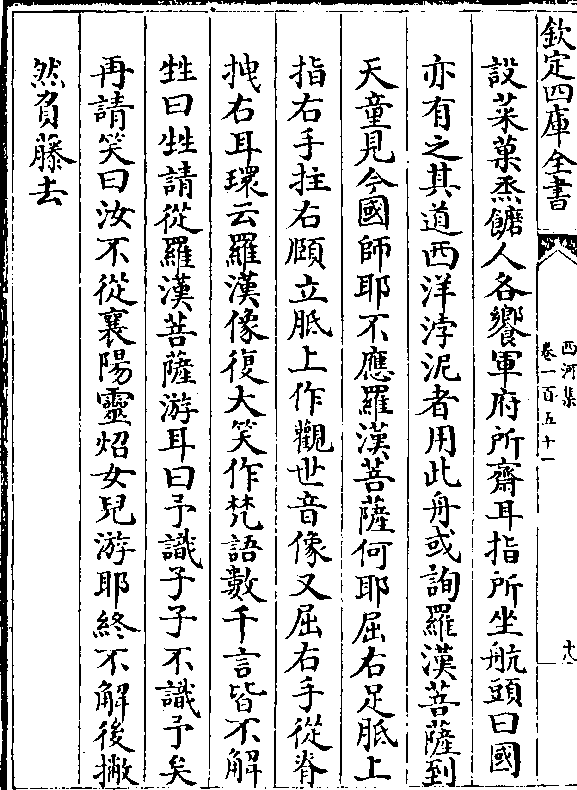 欽定四庫全書
西河集
卷一百五十一
十八
設菜菓烝餹人各饗軍府所齋耳指所坐航頭曰國
亦有之其道西洋浡泥者用此舟或詢羅漢菩薩到
天童見今國師耶不應羅漢菩薩何耶屈右足胝上
指右手拄右頤立胝上作觀世音像又屈右手從脊
拽右耳環云羅漢像復大笑作梵語數千言皆不解
甡曰甡請從羅漢菩薩游耳曰予識子子不識予矣
再請笑曰汝不從襄陽靈炤女兒游耶終不解後撇
然負藤去